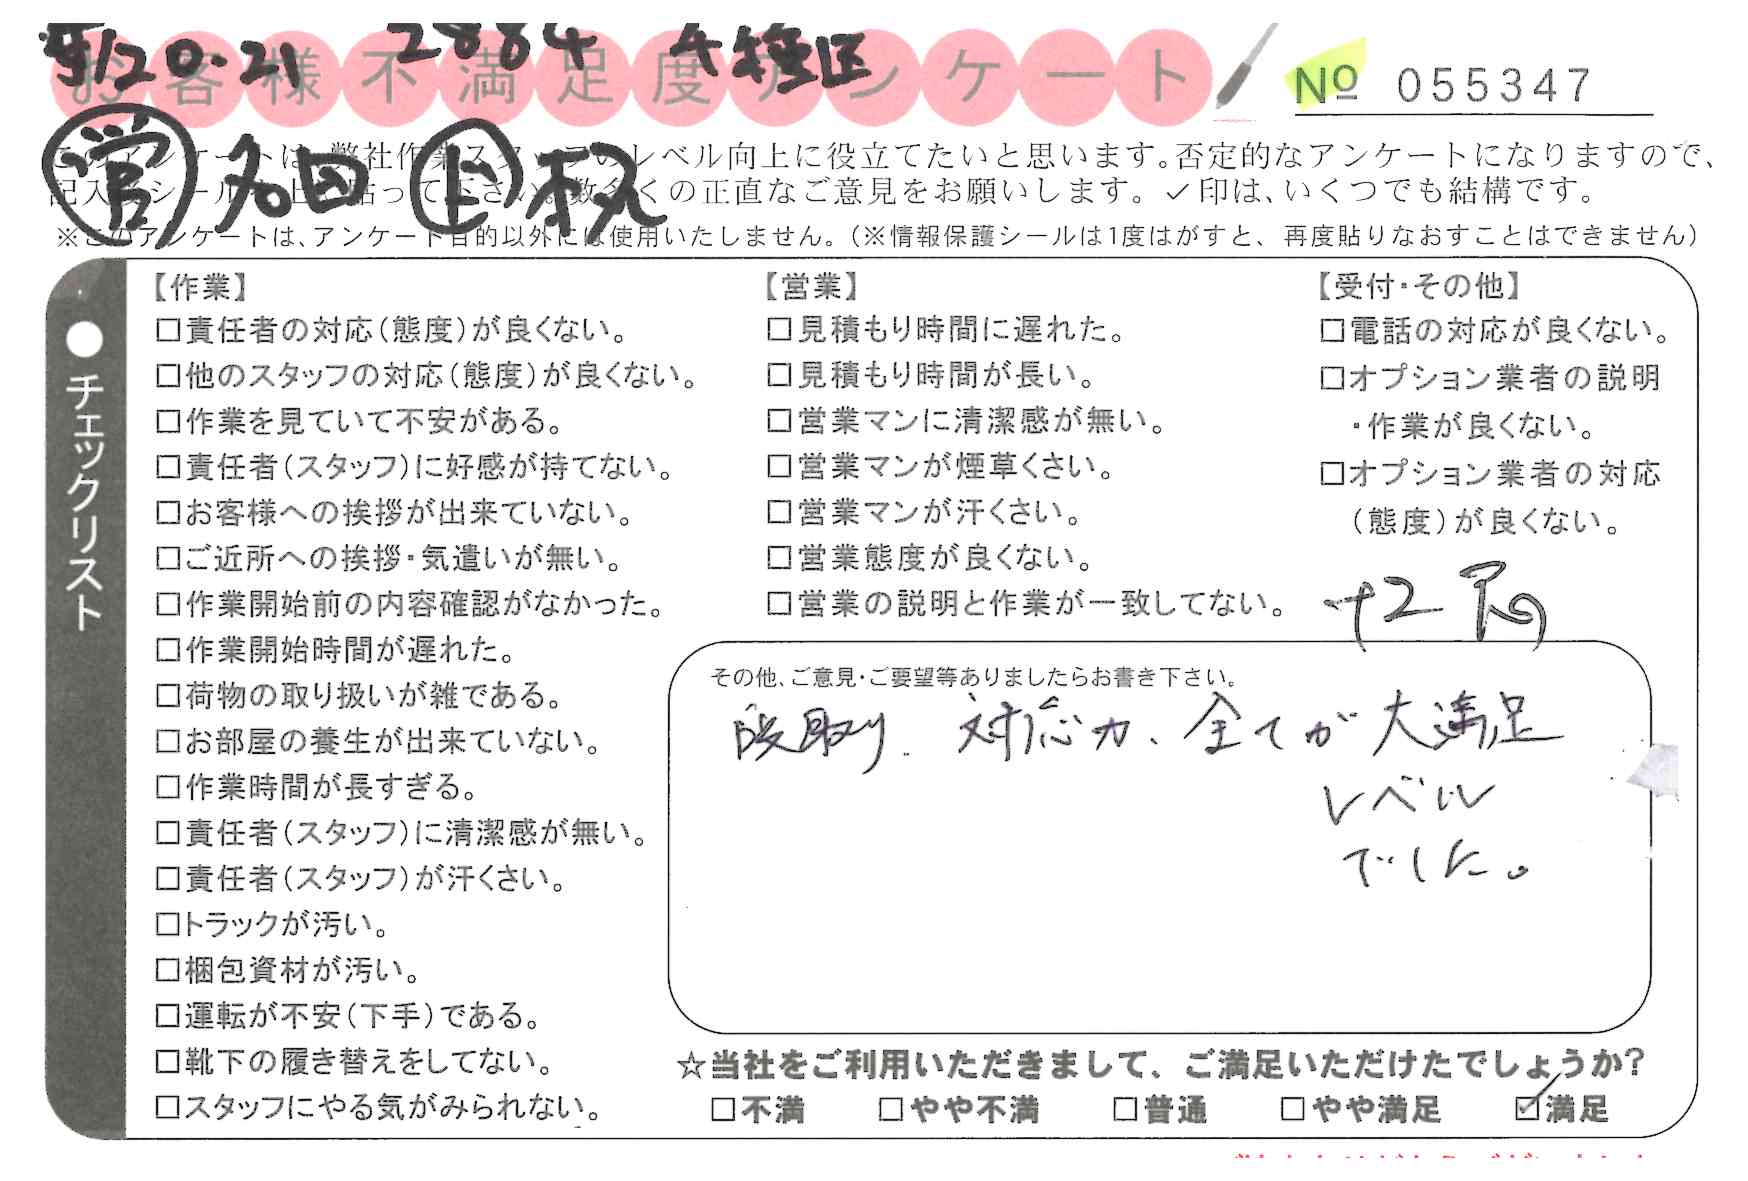 9/20・21 2884 千種区
お客様不満足度アンケート
No 055347
このアンケートは、弊社作業スタッフのレベル向上に役立てたいと思います。否定的なアンケートになりますので、
記入後シールを上に貼って下さい。数多くの正直なご意見をお願いします。✓印は、いくつでも結構です。
営 名田 上 秋
※このアンケートは、アンケート目的以外には使用いたしません。(※情報保護シールは1度はがすと、再度貼りなおすことはできません)
●チェックリスト
【作業】
□責任者の対応(態度)が良くない。
□他のスタッフの対応(態度)が良くない。
□作業を見ていて不安がある。
□責任者(スタッフ)に好感が持てない。
□お客様への挨拶が出来ていない。
□ご近所への挨拶・気遣いが無い。
□作業開始前の内容確認がなかった。
□作業開始時間が遅れた。
□荷物の取り扱いが雑である。
□お部屋の養生が出来ていない。
□作業時間が長すぎる。
□責任者(スタッフ)に清潔感が無い。
□責任者(スタッフ)が汗くさい。
□トラックが汚い。
□梱包資材が汚い。
□運転が不安(下手)である。
□靴下の履き替えをしてない。
□スタッフにやる気がみられない。
【営業】
□見積もり時間に遅れた。
□見積もり時間が長い。
□営業マンに清潔感が無い。
□営業マンが煙草くさい。
□営業マンが汗くさい。
□営業態度が良くない。
□営業の説明と作業が一致してない。
【受付・その他】
□電話の対応が良くない。
□オプション業者の説明
・作業が良くない。
□オプション業者の対応
(態度)が良くない。
+2
その他、ご意見・ご要望等ありましたらお書き下さい。
段取り、対応力、全てが大満足
レベル
でした。
☆当社をご利用いただきまして、ご満足いただけたでしょうか?
□不満 □やや不満 □普通 □やや満足 ☑満足